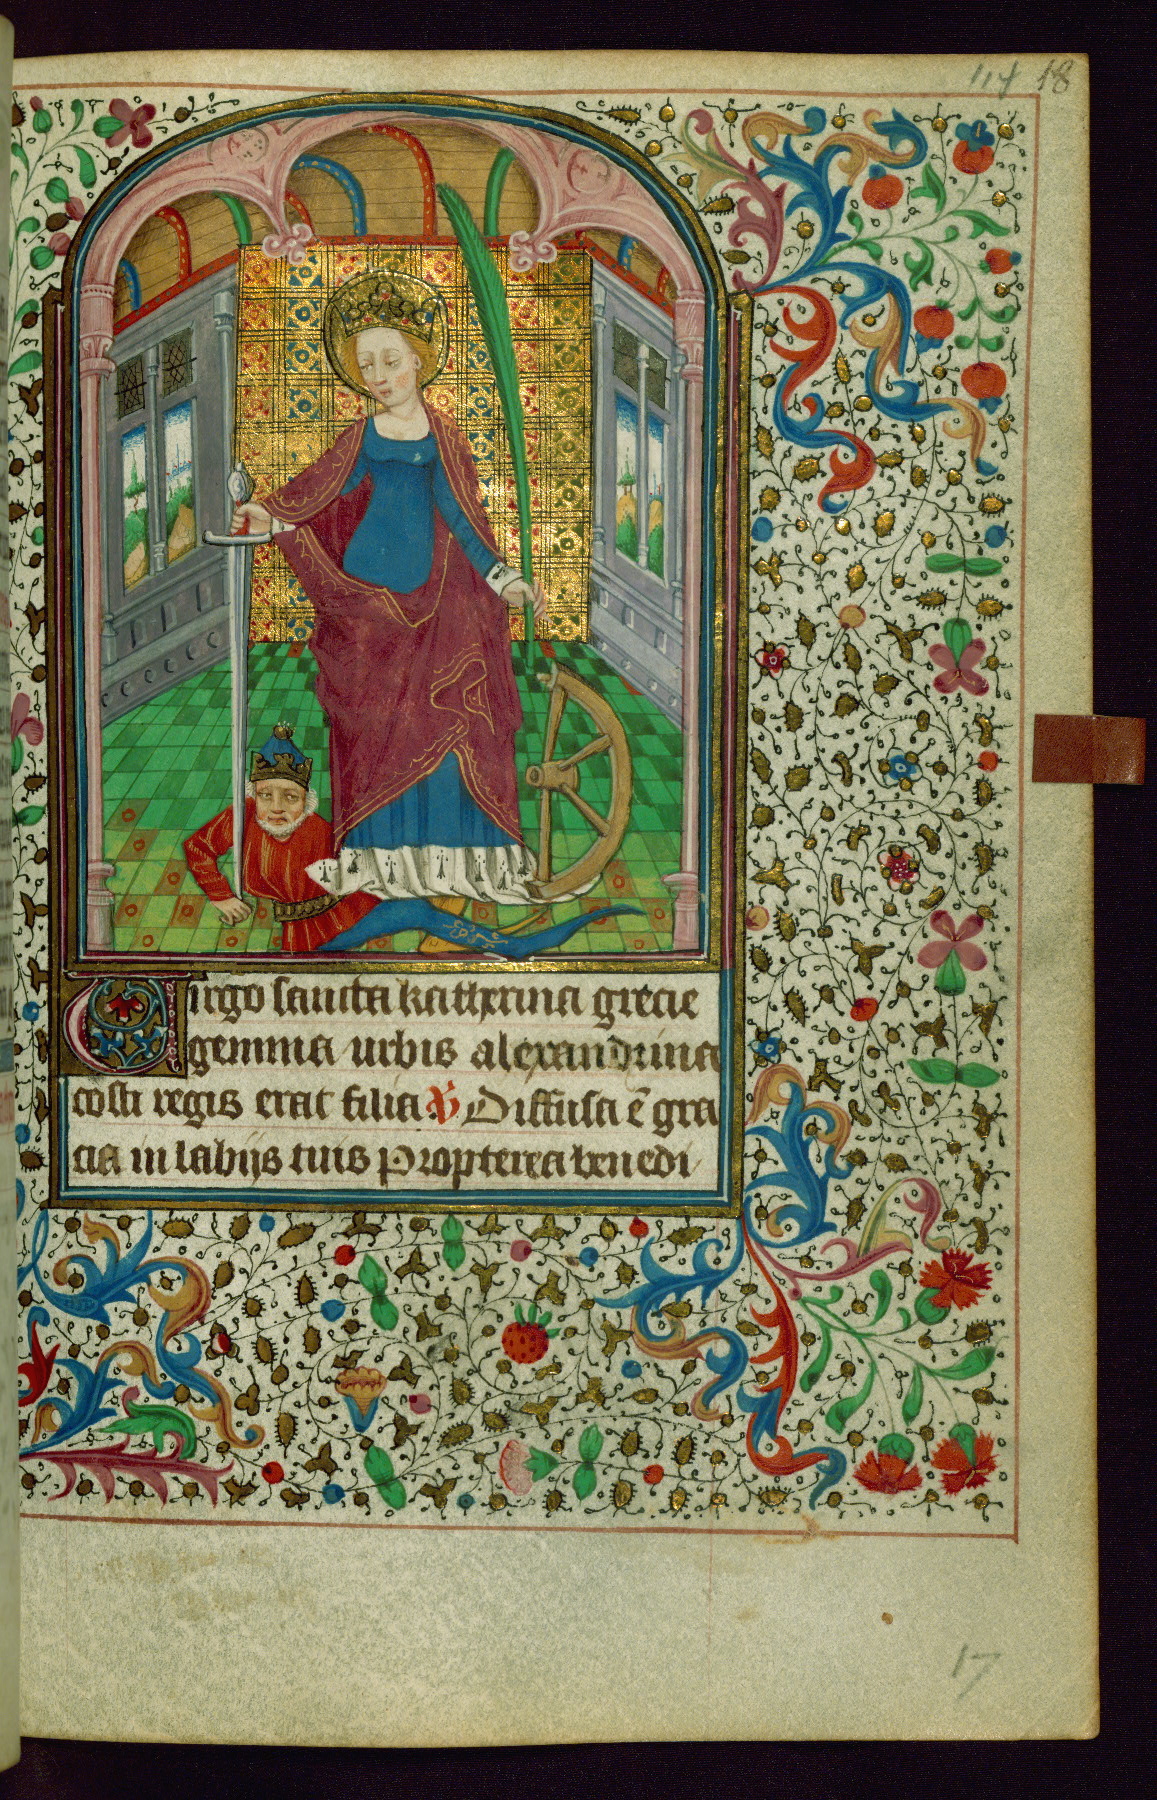 114 18
Virgo sancta katherina grecie
gemma urbis alexandrina
costi regis erat filia ℣ Diffusa ē gra
cia in labijs tuis Propterea benedi
17